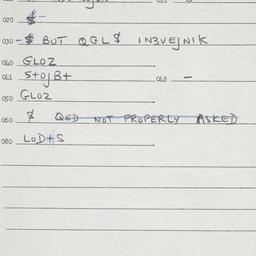 020 $-
030 - $ BUT QGL$ INBVEJNIK
040 GLOZ
041 S+OJB+ 042 -
050 GLOZ
060 $ QED NOT PROPERLY ASKED
080 LOD+S